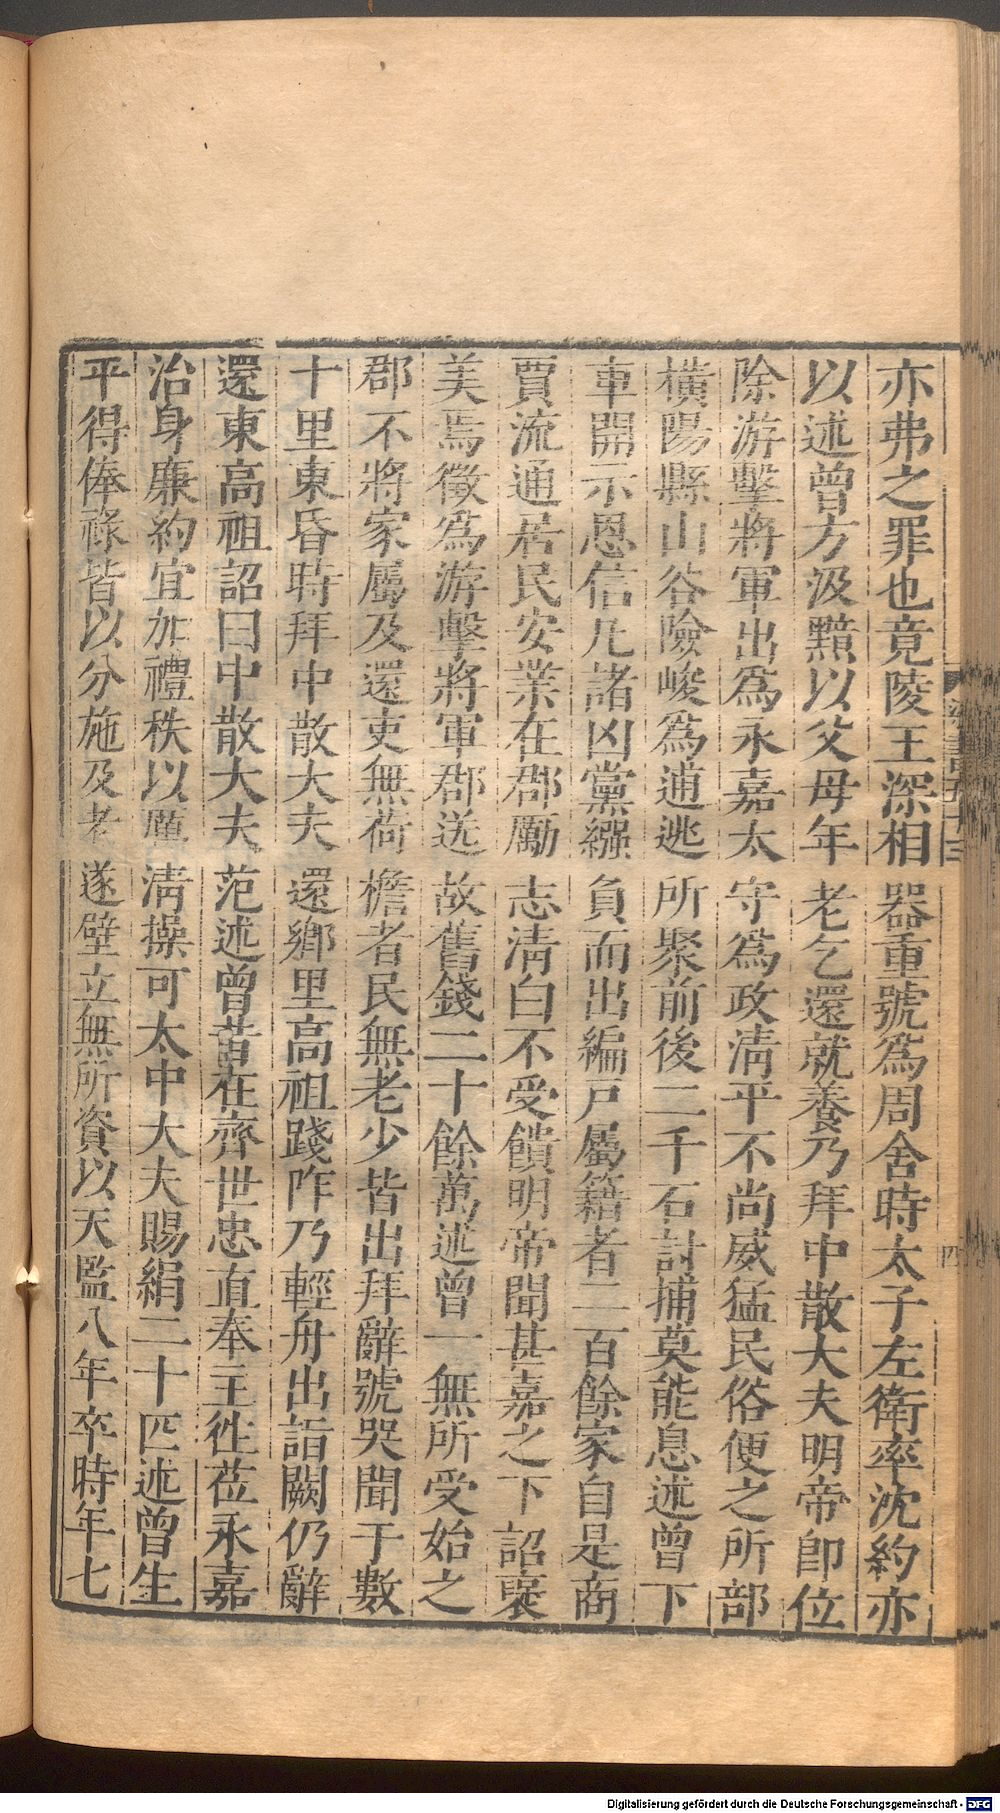 亦弗之罪也竟陵王深相器重號為周舍時太子左衛率沈約亦
以述曾方汲黯以父母年老乞還就養乃拜中散大夫明帝即位
除游擊將軍出為永嘉太守為政清平不尚威猛民俗便之所部
橫陽縣山谷險峻為逋逃所聚前後二千石討捕莫能息述曾下
車開示恩信凡諸凶黨繦負而出編戶屬籍者二百餘家自是商
賈流通居民安業在郡勵志清白不受饋明帝聞甚嘉之下詔褒
美焉徵為游擊將軍郡送故舊錢二十餘萬述曾一無所受始之
郡不將家屬及還吏無荷檐者民無老少皆出拜辭號哭聞于數
十里東昏時拜中散大夫還鄉里高祖踐阼乃輕舟出詣闕仍辭
還東高祖詔曰中散大夫范述曾昔在齊世忠直奉主往莅永嘉
治身廉約宜加禮秩以厲清操可太中大夫賜絹二十匹述曾生
平得俸祿皆以分施及老遂壁立無所資以天監八年卒時年七
四
Digitalisierung gefördert durch die Deutsche Forschungsgemeinschaft - DFG